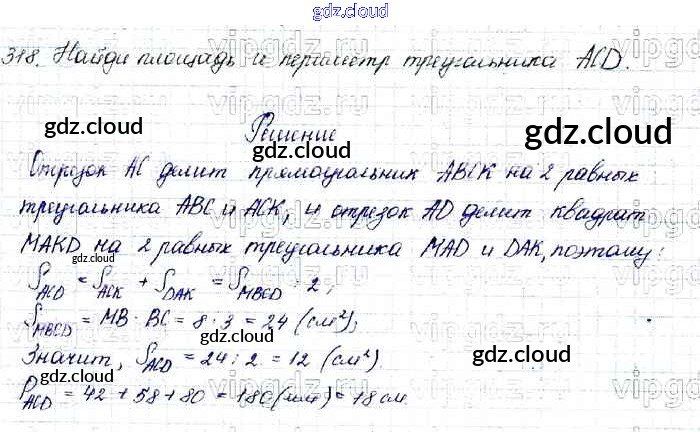 gdz.cloud
318. Найди площадь и периметр треугольника ACD.
gdz.cloud gdz.cloud
Решение
Отрезок AC делит прямоугольник ABCK на 2 равных
треугольника ABC и ACK, и отрезок AD делит квадрат
MAKD на 2 равных треугольника MAD и DAK, поэтому:
gdz.cloud
S ACD = S ACK + S DAK = S MBCD : 2;
S MBCD = MB · BC = 8 · 3 = 24 (см²);
gdz.cloud
Значит, S ACD = 24 : 2 = 12 (см²).
gdz.cloud
P ACD = 42 + 58 + 80 = 180 (мм) = 18 см
gdz.cloud